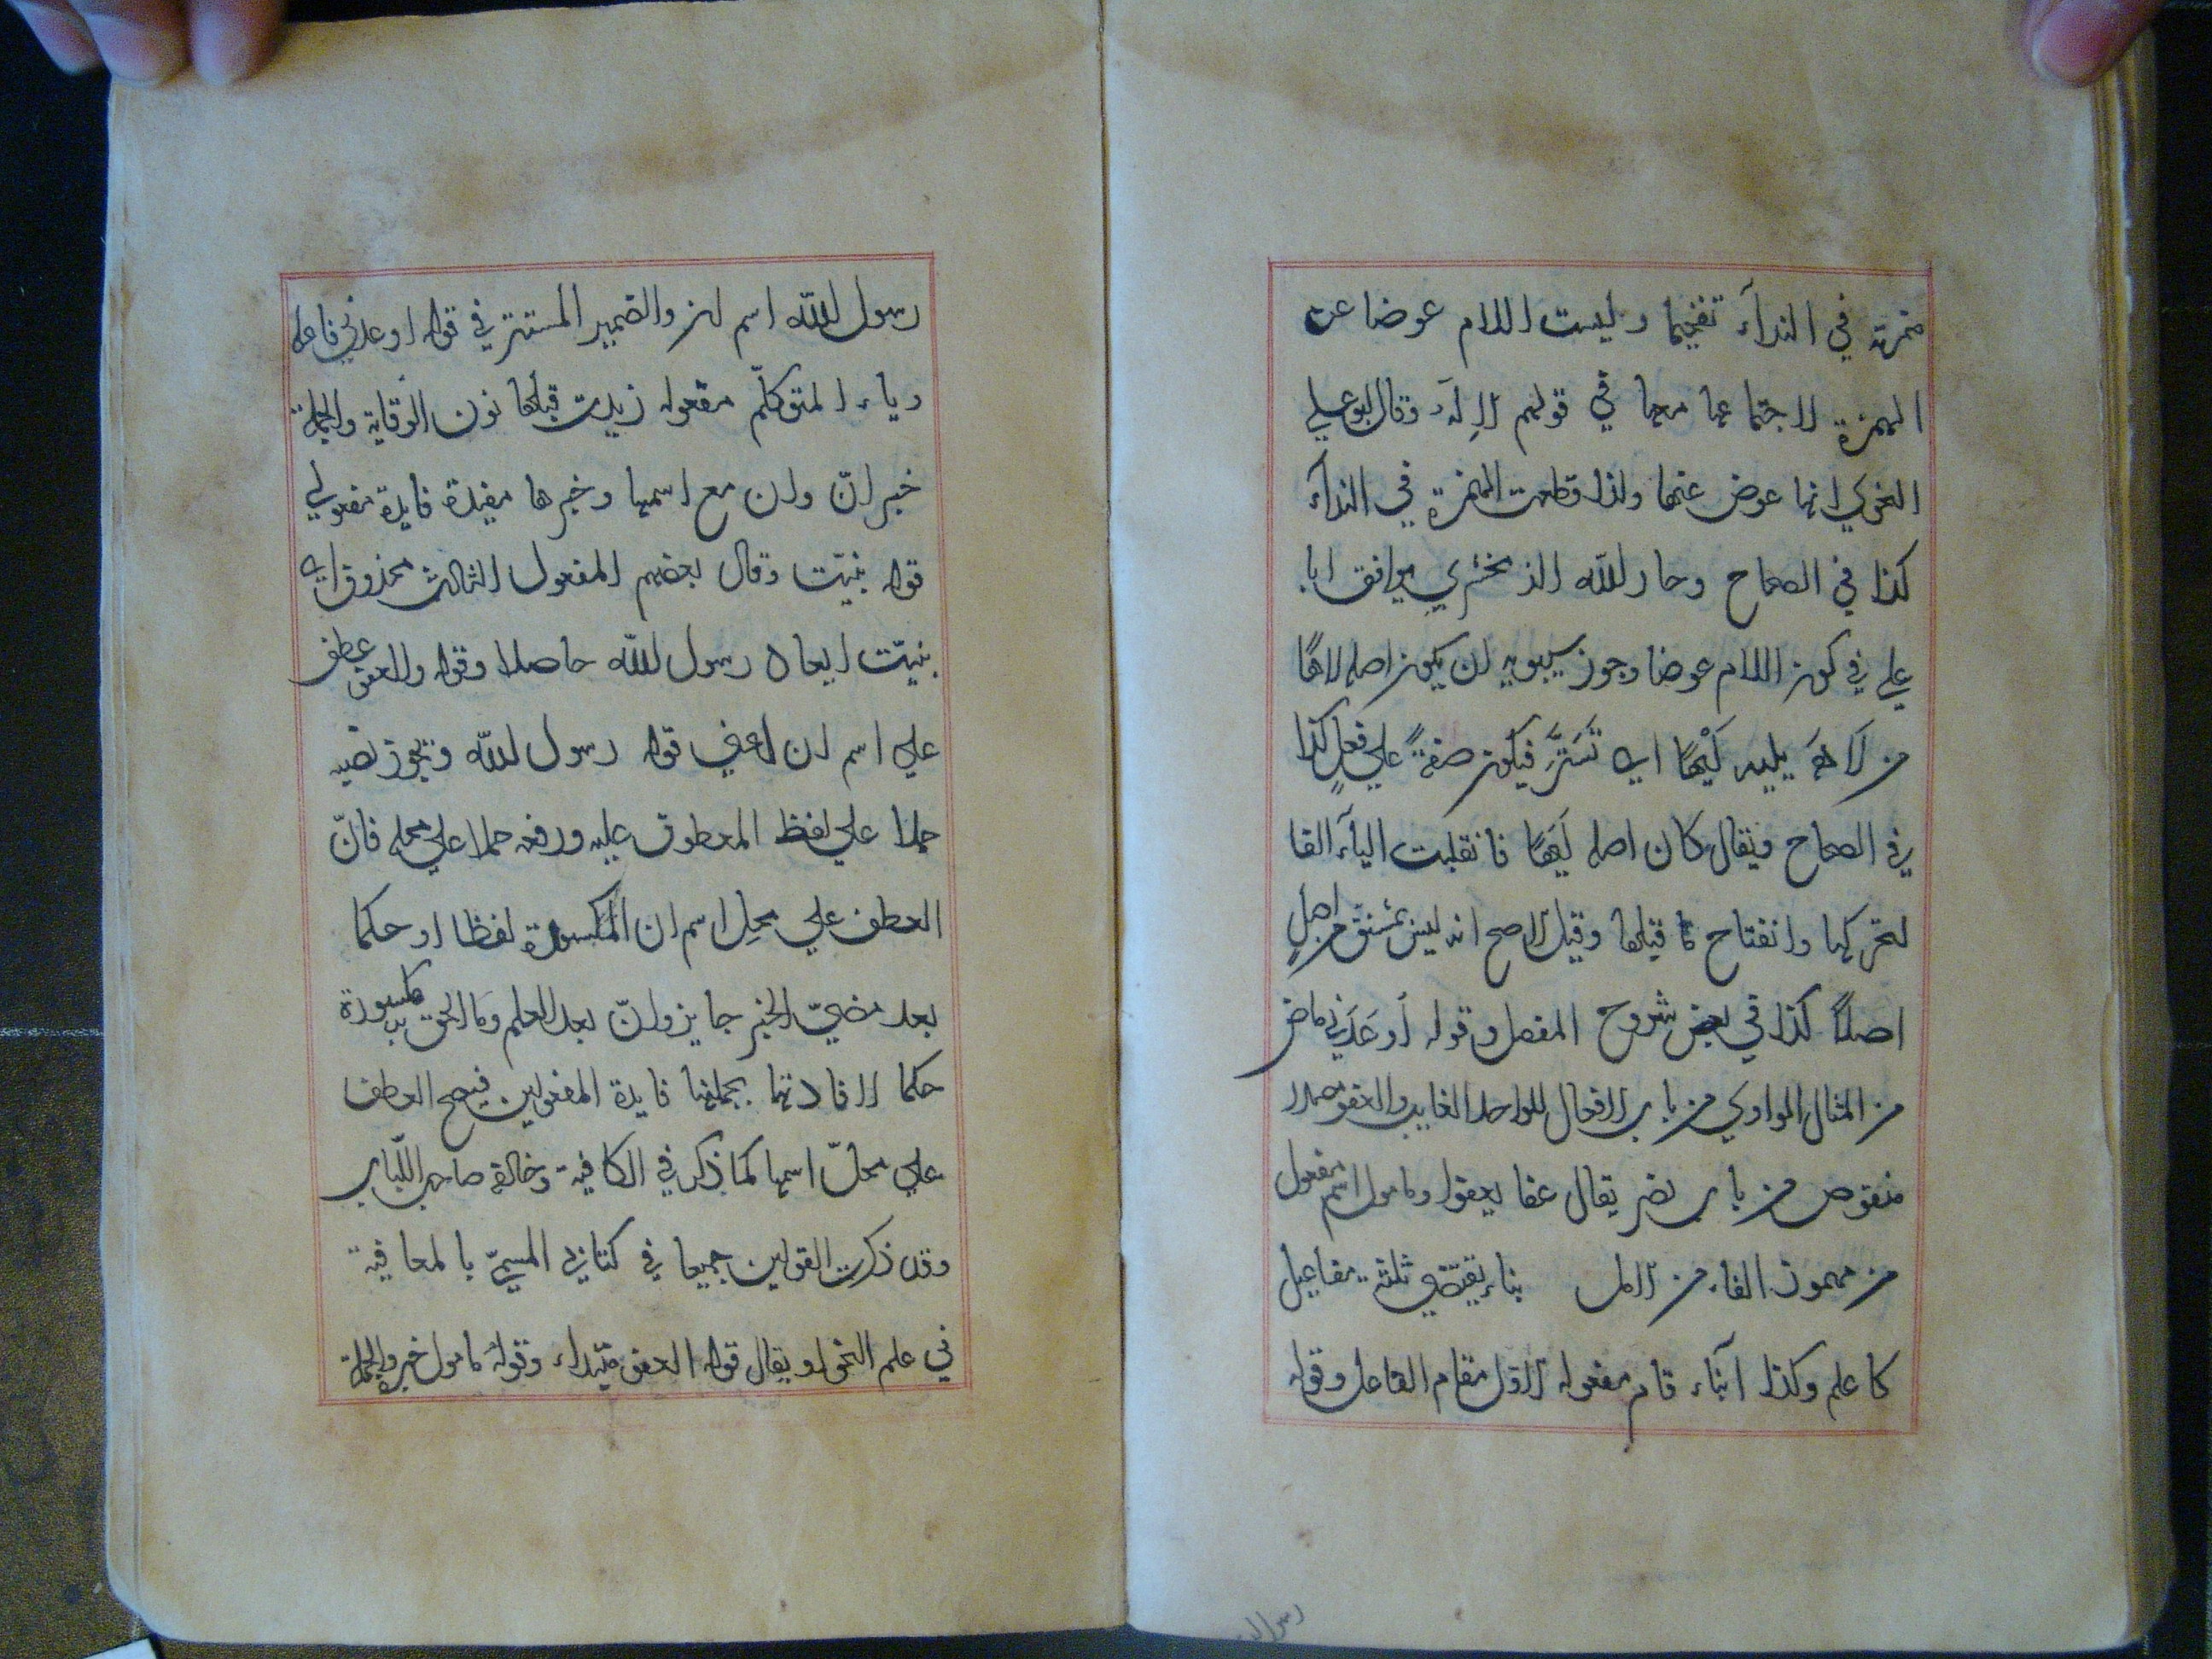 همزته في الندآء تفخيما وليست اللام عوضا عن
الهمزة لاجتماعهما معها في قولهم الإله وقال ابو علي
النحوي انها عوض عنها ولذا قطعت الهمزة في الندآء
كذا في الصحاح وجار الله الزمخشري موافق ابا
علي في كون اللام عوضا وجوز سيبويه ان يكون اصله لاهًا
من لَاهَ يليه لَيْهًا اي تَسَتَّرَ فيكون صفةً علي فعلٍ كذا
في الصحاح ويقال كان اصله لَيَهًا فانقلبت اليآء الفا
لتحركها وانفتاح ما قبلها وقيل الاصح انه ليس بمشتق من اصلٍ
اصلاً كذا في بعض شروح المفصل وقوله أوعَدَني ماض
من المثال الواوي من باب الافعال للواحد الغايب والعفو مصدر
منقوص من باب نصر يقال عفا يعفو ومامول اسم مفعول
من مهموز الفاء من الامل بناء يقتضي ثلثة مفاعيل
كاعلم وكذا انباء قام مفعوله الاول مقام الفاعل وقوله
رسول الله
رسول الله اسم ان والضمير المستتر في قوله اوعدني فاعله
وياء المتوكلّم مفعوله زيدت قبلها نون الوقاية والجملة
خبر انّ وان مع اسمها وخبرها مفيدة فايدة مفعولي
قوله نبيّت وقال بعضهم المفعول الثالث محذوف اي
نبيّت ايعاد رسول الله حاصلا وقوله والعفو عطف
علي اسم ان اعني قوله رسول الله ويجوز نصبه
حملا علي لفظ المعطوف عليه ورفعه حملا علي محله فانّ
العطف علي محل اسم ان المكسورة لفظا او حكما
بعد مضيّ الخبر جايز وانّ بعد العلم وما الحق به مكسورة
حكما لافادتها بجملتها فايدة المفعولين فيصح العطف
علي محلّ اسمها كما ذكر في الكافية وخالفه صاحب اللّباب
وقد ذكرت القولين جميعا في كتابي المسمّي بالمعافية
في علم النحو او يقال قوله العفو مبتداء وقوله مامول خبره والجملة